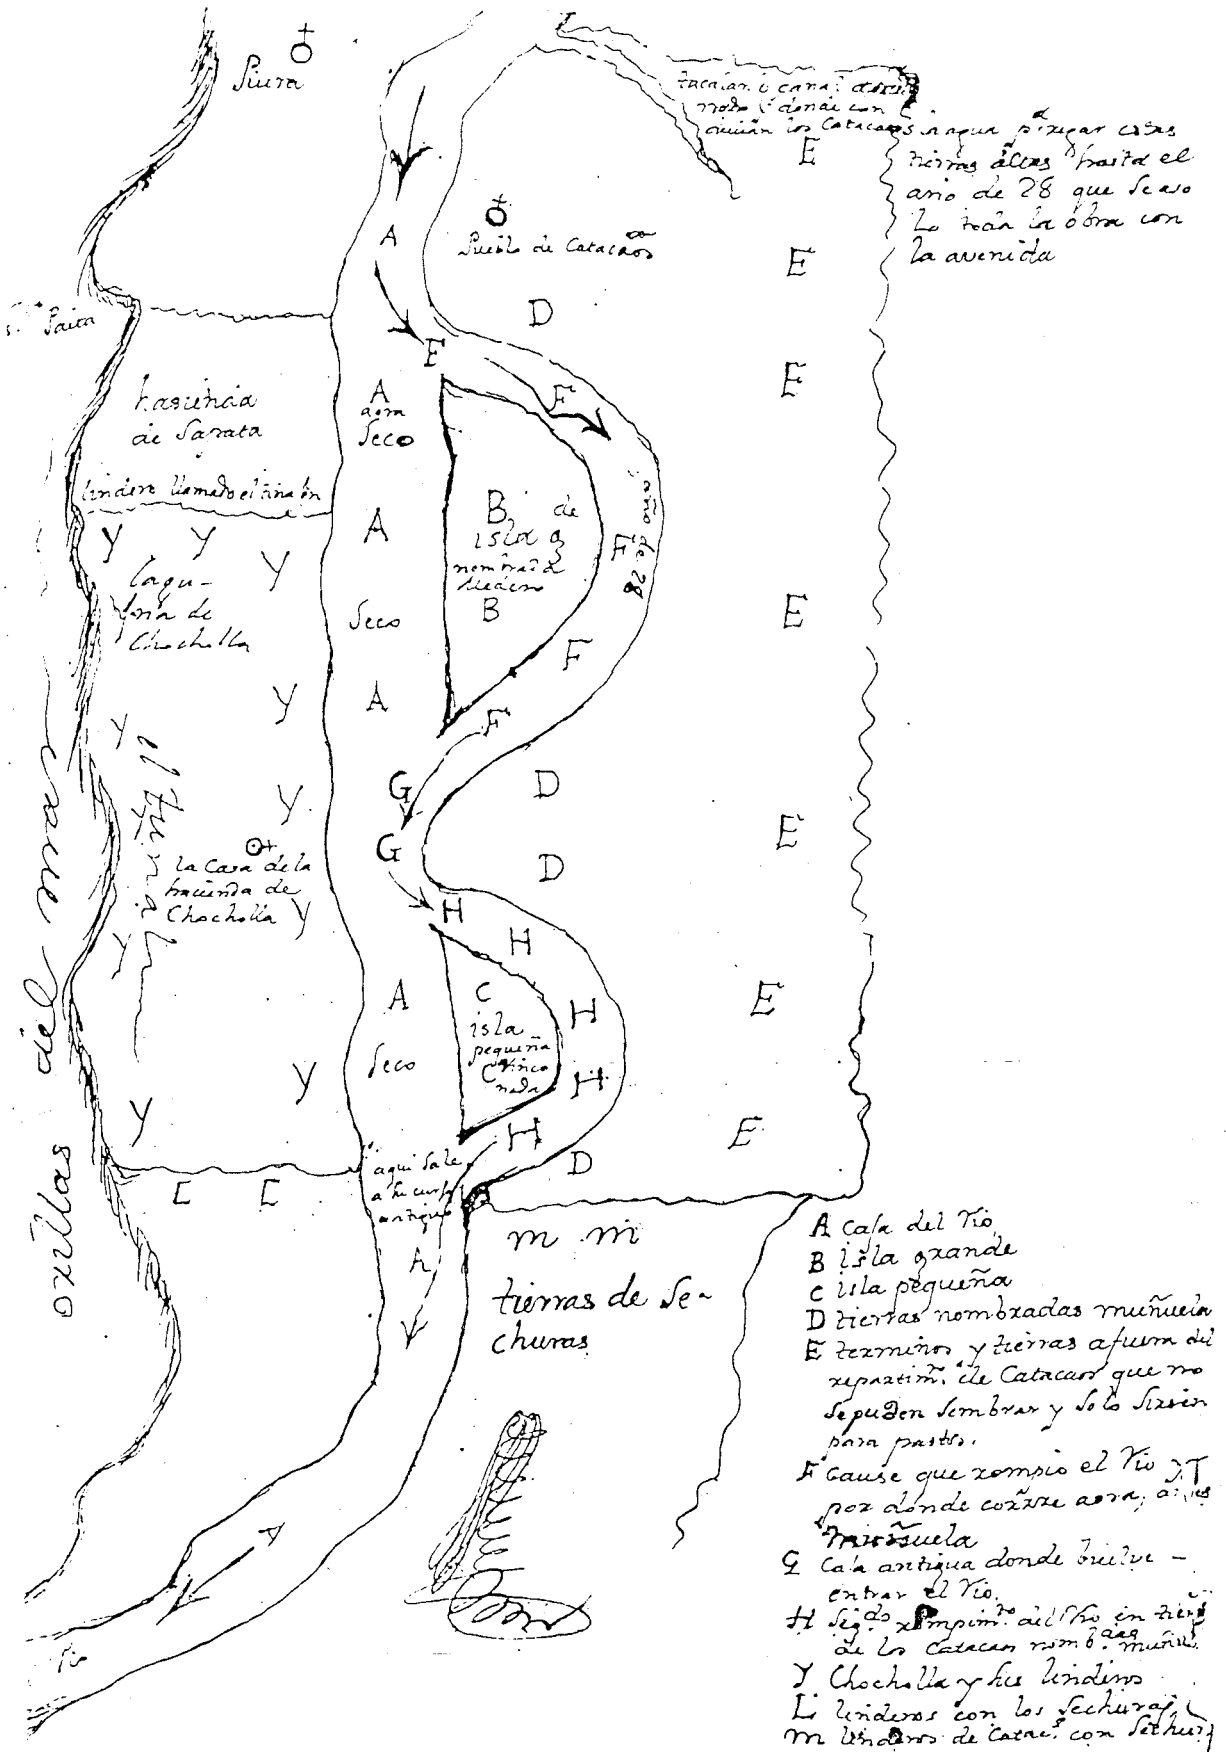 Piura
tacalan i canal
donde con
los Catacaos agua pa regar estas
tierras altas hasta el
año de 28 que se aso
lo toda la obra con
la avenida
E
A
Pueblo de Catacaos
E
D
Paita
F
E
hasienda
de Sarata
A
aora
Seco
F
lindero llamado el
B de
isla g
nombrada
B
año de 28
F
A
Y Y Y
lagu-
na de
Chocholla
Seco
E
F
Y
A
F
Y
el tunal
G
D
E
Y
G
D
la Casa de la
hacienda de
Chocholla
Y
Y
H
H
orillas del mar
A
C
isla
pequeña
C rinco
nada
H
E
Seco
H
Y
Y
H
E
D
aqui sale
a su curso
antiguo
L L
A
m m
tierras de Se-
churas
A
Rio
A Caja del rio
B isla grande
C isla pequeña
D tierras nombradas muñuela
E terminos y tierras afuera del
repartim.to de Catacaos que no
se pueden sembrar y solo sirven
para pastos.
F Cause que rompio el rio
por donde corre aora,
muñuela
G Caja antigua donde buelve
entrar el rio.
H Seg.do rompim.to del Rio en
de los Catacaos nomb.das
Y Chocholla y sus linderos
L linderos con los Sechuras
m linderos de Catac.s con Sechura